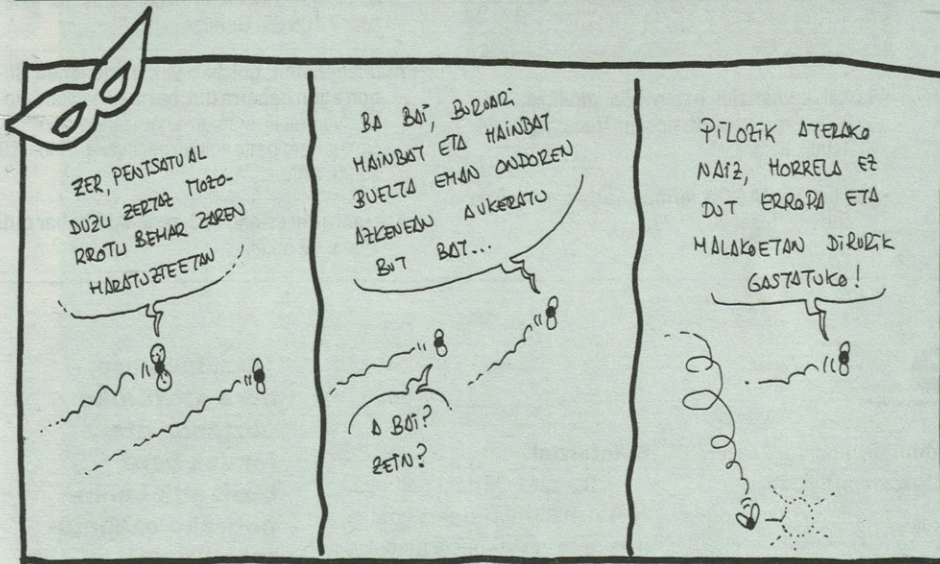 ZER, PENTSATU AL
DUZU ZERTAZ MOZO-
RROTU BEHAR ZAREN
MARATUZTEETAN
BA BAI, BURUARI
HAINBAT ETA HAINBAT
BUELTA EMAN ONDOREN
AZKENEAN AUKERATU
DUT BAT...
A BAI?
ZEIN?
PILOZIK ATERAKO
NAIZ, HORRELA EZ
DUT ERROPA ETA
MALAKOETAN DIRURIK
GASTATUKO!